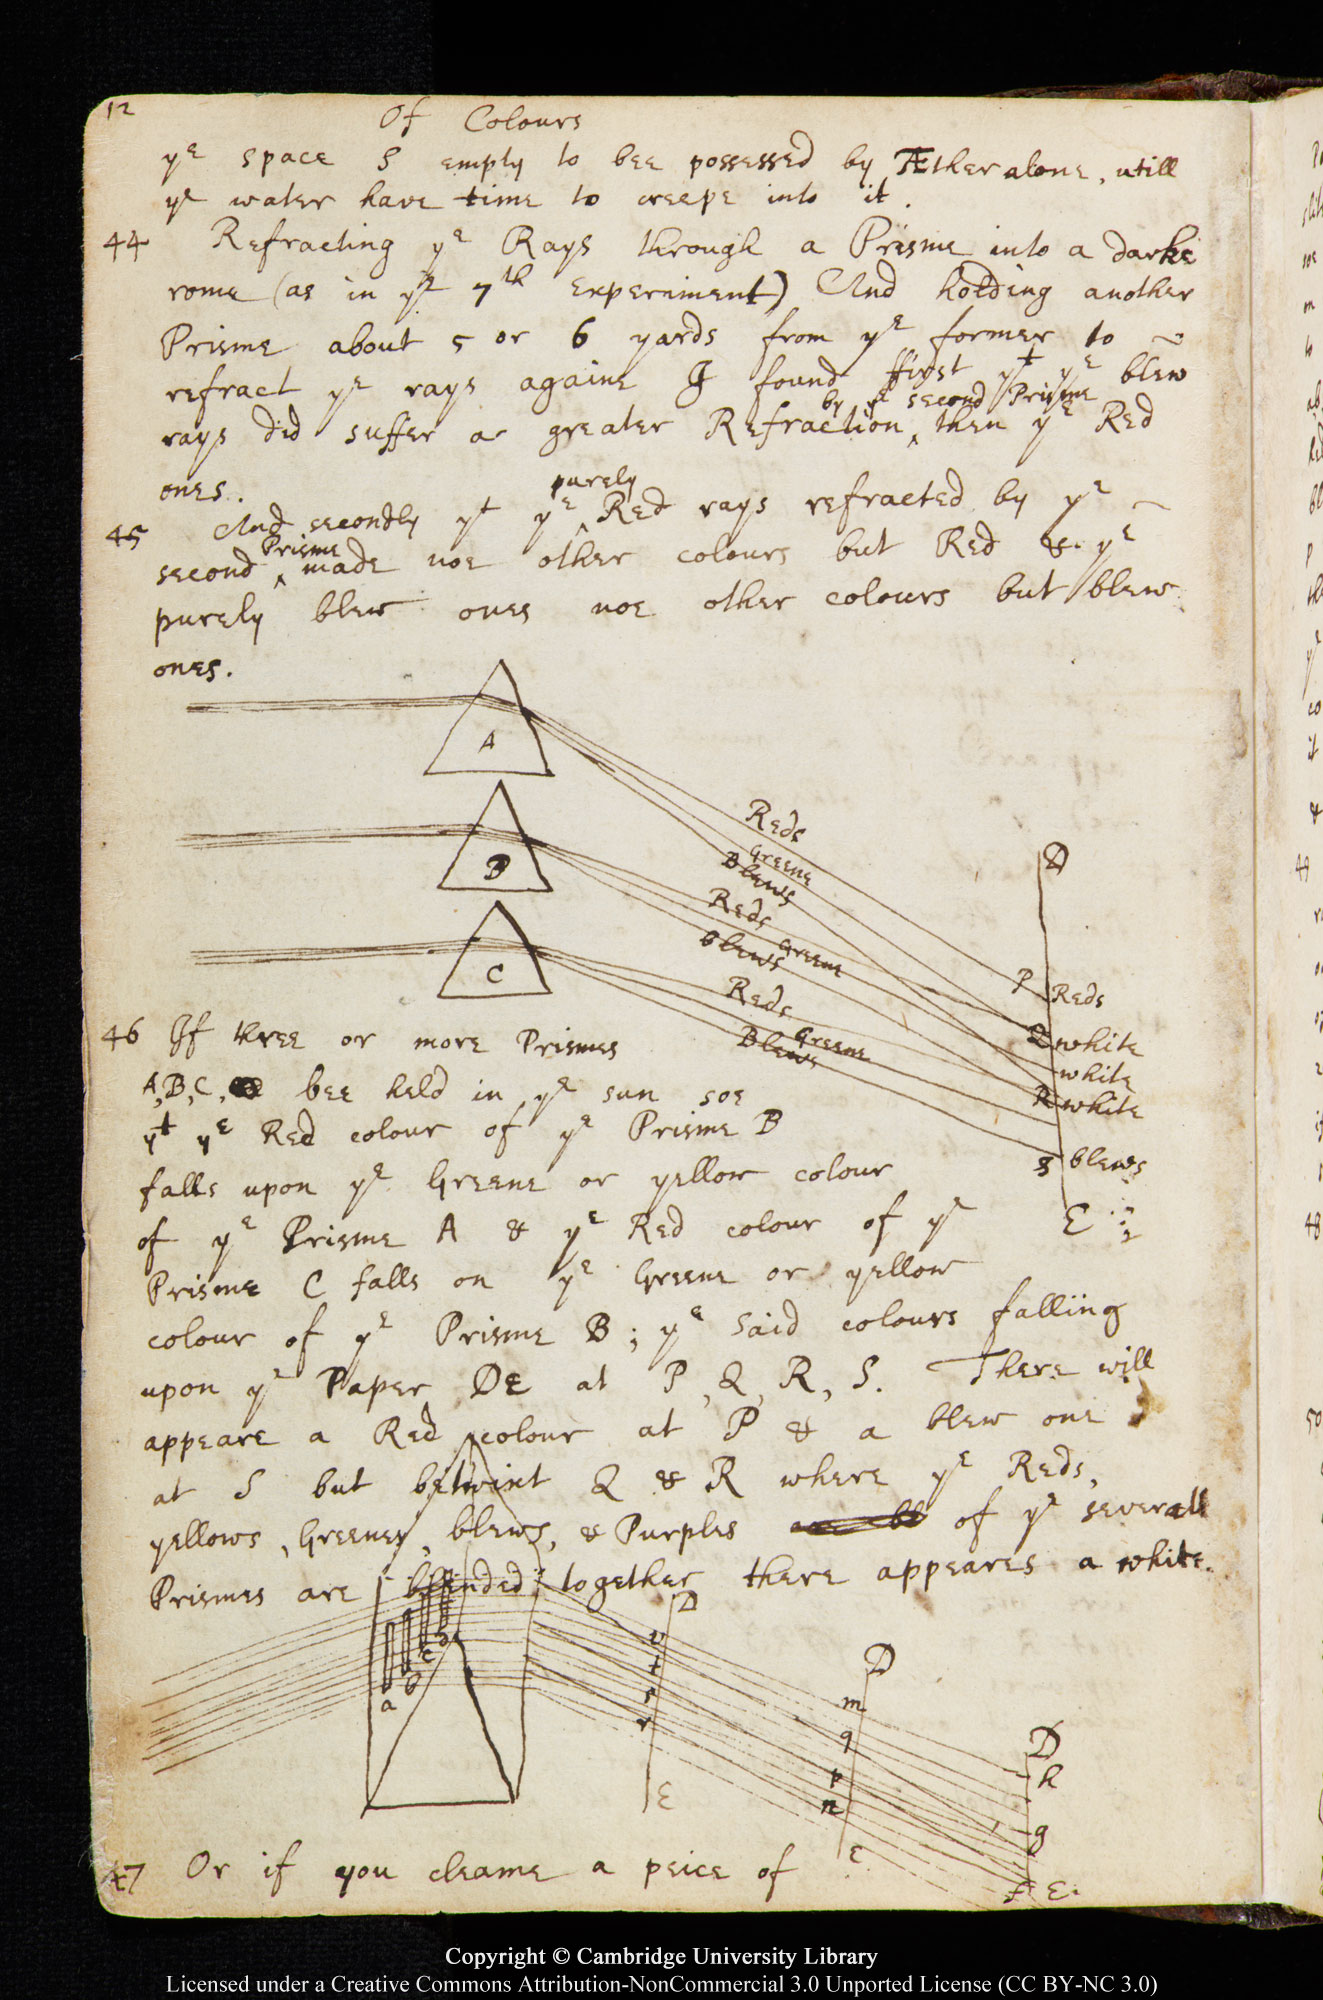 12
Of Colours
yᵉ space S empty to bee possessed by Æther alone, utill
yᵉ water have time to creepe into it.
44 Refracting yᵉ Rays through a Prisme into a darke
rome (as in yᵉ 7th experiment) And holding another
Prisme about 5 or 6 yards from yᵉ former to
refract yᵉ rays againe I found ffirst yᵗ yᵉ blew
by yᵉ second Prisme
rays did suffer a greater Refraction ‸ then yᵉ Red
ones.
purely
45 And secondly yᵗ yᵉ ‸ Red rays refracted by yᵉ
Prisme
second ‸ made noe other colours but Red & yᵉ
purely blew ones noe other colours but blew
ones.
A
Reds
Greene
Blews
D
B
Reds
Greene
blews
C
Reds
Greene
Blews
P Reds
Q white
white
R white
S blews
E
46 If three or more Prismes
A, B, C, bee held in yᵉ sun soe
yᵗ yᵉ Red colour of yᵉ Prisme B
falls upon yᵉ Greene or yellow colour
of yᵉ Prisme A & yᵉ Red colour of yᵉ
Prisme C falls on yᵉ Greene or yellow
colour of yᵉ Prisme B; yᵉ said colours falling
upon yᵉ Paper DE at P, Q, R, S. There will
appeare a Red colour at P & a blew one
at S but betwixt Q & R where yᵉ Reds,
yellows, Greenes, blews, & Purples of yᵉ severall
Prismes are blended together there appeares a white.
a b c d
D
v
t
s
r
E
D
m
q
p
n
E
D
h
g
f E
47 Or if you cleame a peice of
Copyright © Cambridge University Library
Licensed under a Creative Commons Attribution-NonCommercial 3.0 Unported License (CC BY-NC 3.0)